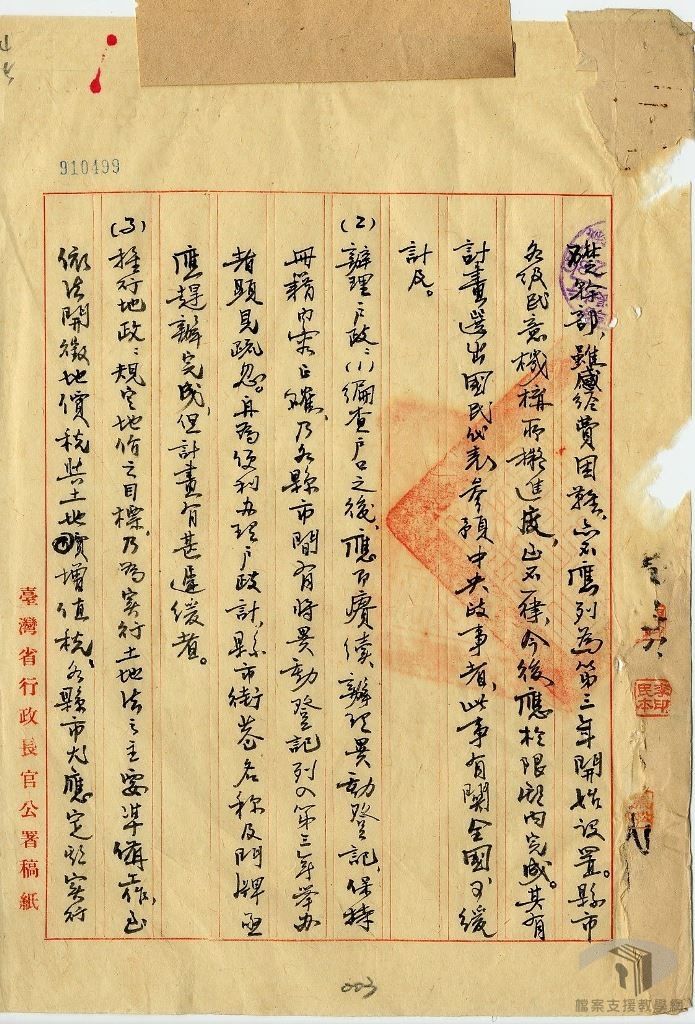 910499
礎幹部,雖感給費困難,亦不應列為第三年開始設置。縣市
各級民意機構所擬進度,亦不一律,今後應於限期內完成。其有
計畫選出國民代表參預中央政事者,此事有關全國可緩
計及。
(2)辦理戶政:(1)編查戶口之後,應即賡續辦理異動登記,保持
冊籍內容正確,乃各縣市間有將異動登記列入第三年舉办
者顯見疏忽。再為便利办理戶政計,縣市街巷名称及門牌亟
應趕辦完成,但計畫有甚遲緩者。
(3)推行地政:規定地價之目標,乃為实行土地法之主要準備工作,
依法開徵地價稅與土地增值稅,各縣市尤應定期实行
臺灣省行政長官公署稿紙
003
檔案支援教學網